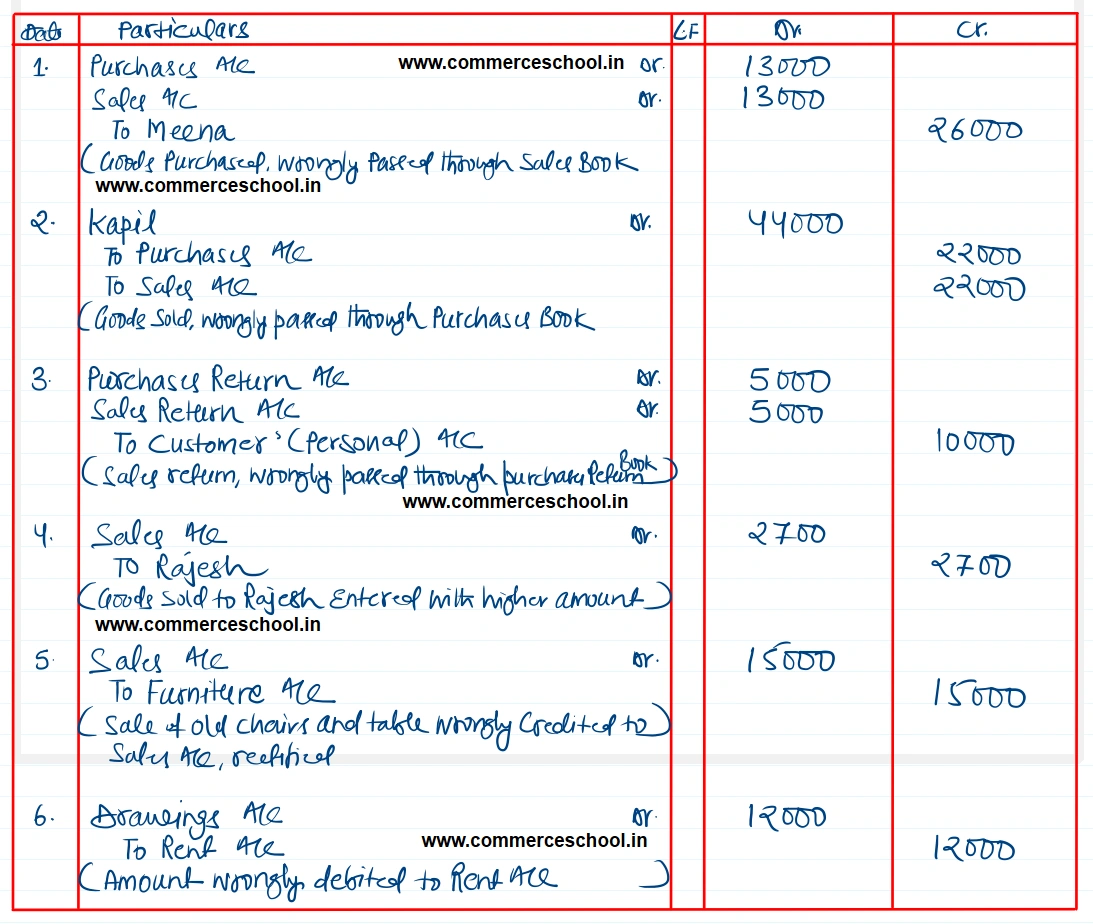 Date Particulars L.F Dr. Cr.
1. Purchases A/C www.commerceschool.in Dr. 13000
Sales A/C Dr. 13000
To Meena 26000
(Goods Purchased, wrongly Passed through Sales Book
www.commerceschool.in
2. Kapil Dr. 44000
To Purchases A/C 22000
To Sales A/C 22000
(Goods Sold, wrongly passed through Purchases Book
3. Purchases Return A/C Dr. 5000
Sales Return A/C Dr. 5000
To Customer's (Personal) A/C 10000
(Sales return, wrongly passed through purchases Return Book)
www.commerceschool.in
4. Sales A/C Dr. 2700
To Rajesh 2700
(Goods Sold to Rajesh Entered with higher amount)
www.commerceschool.in
5. Sales A/C Dr. 15000
To Furniture A/C 15000
(Sale of old chairs and table wrongly Credited to)
Sales A/C, rectified
6. Drawings A/C Dr. 12000
To Rent A/C www.commerceschool.in 12000
(Amount wrongly debited to Rent A/C )